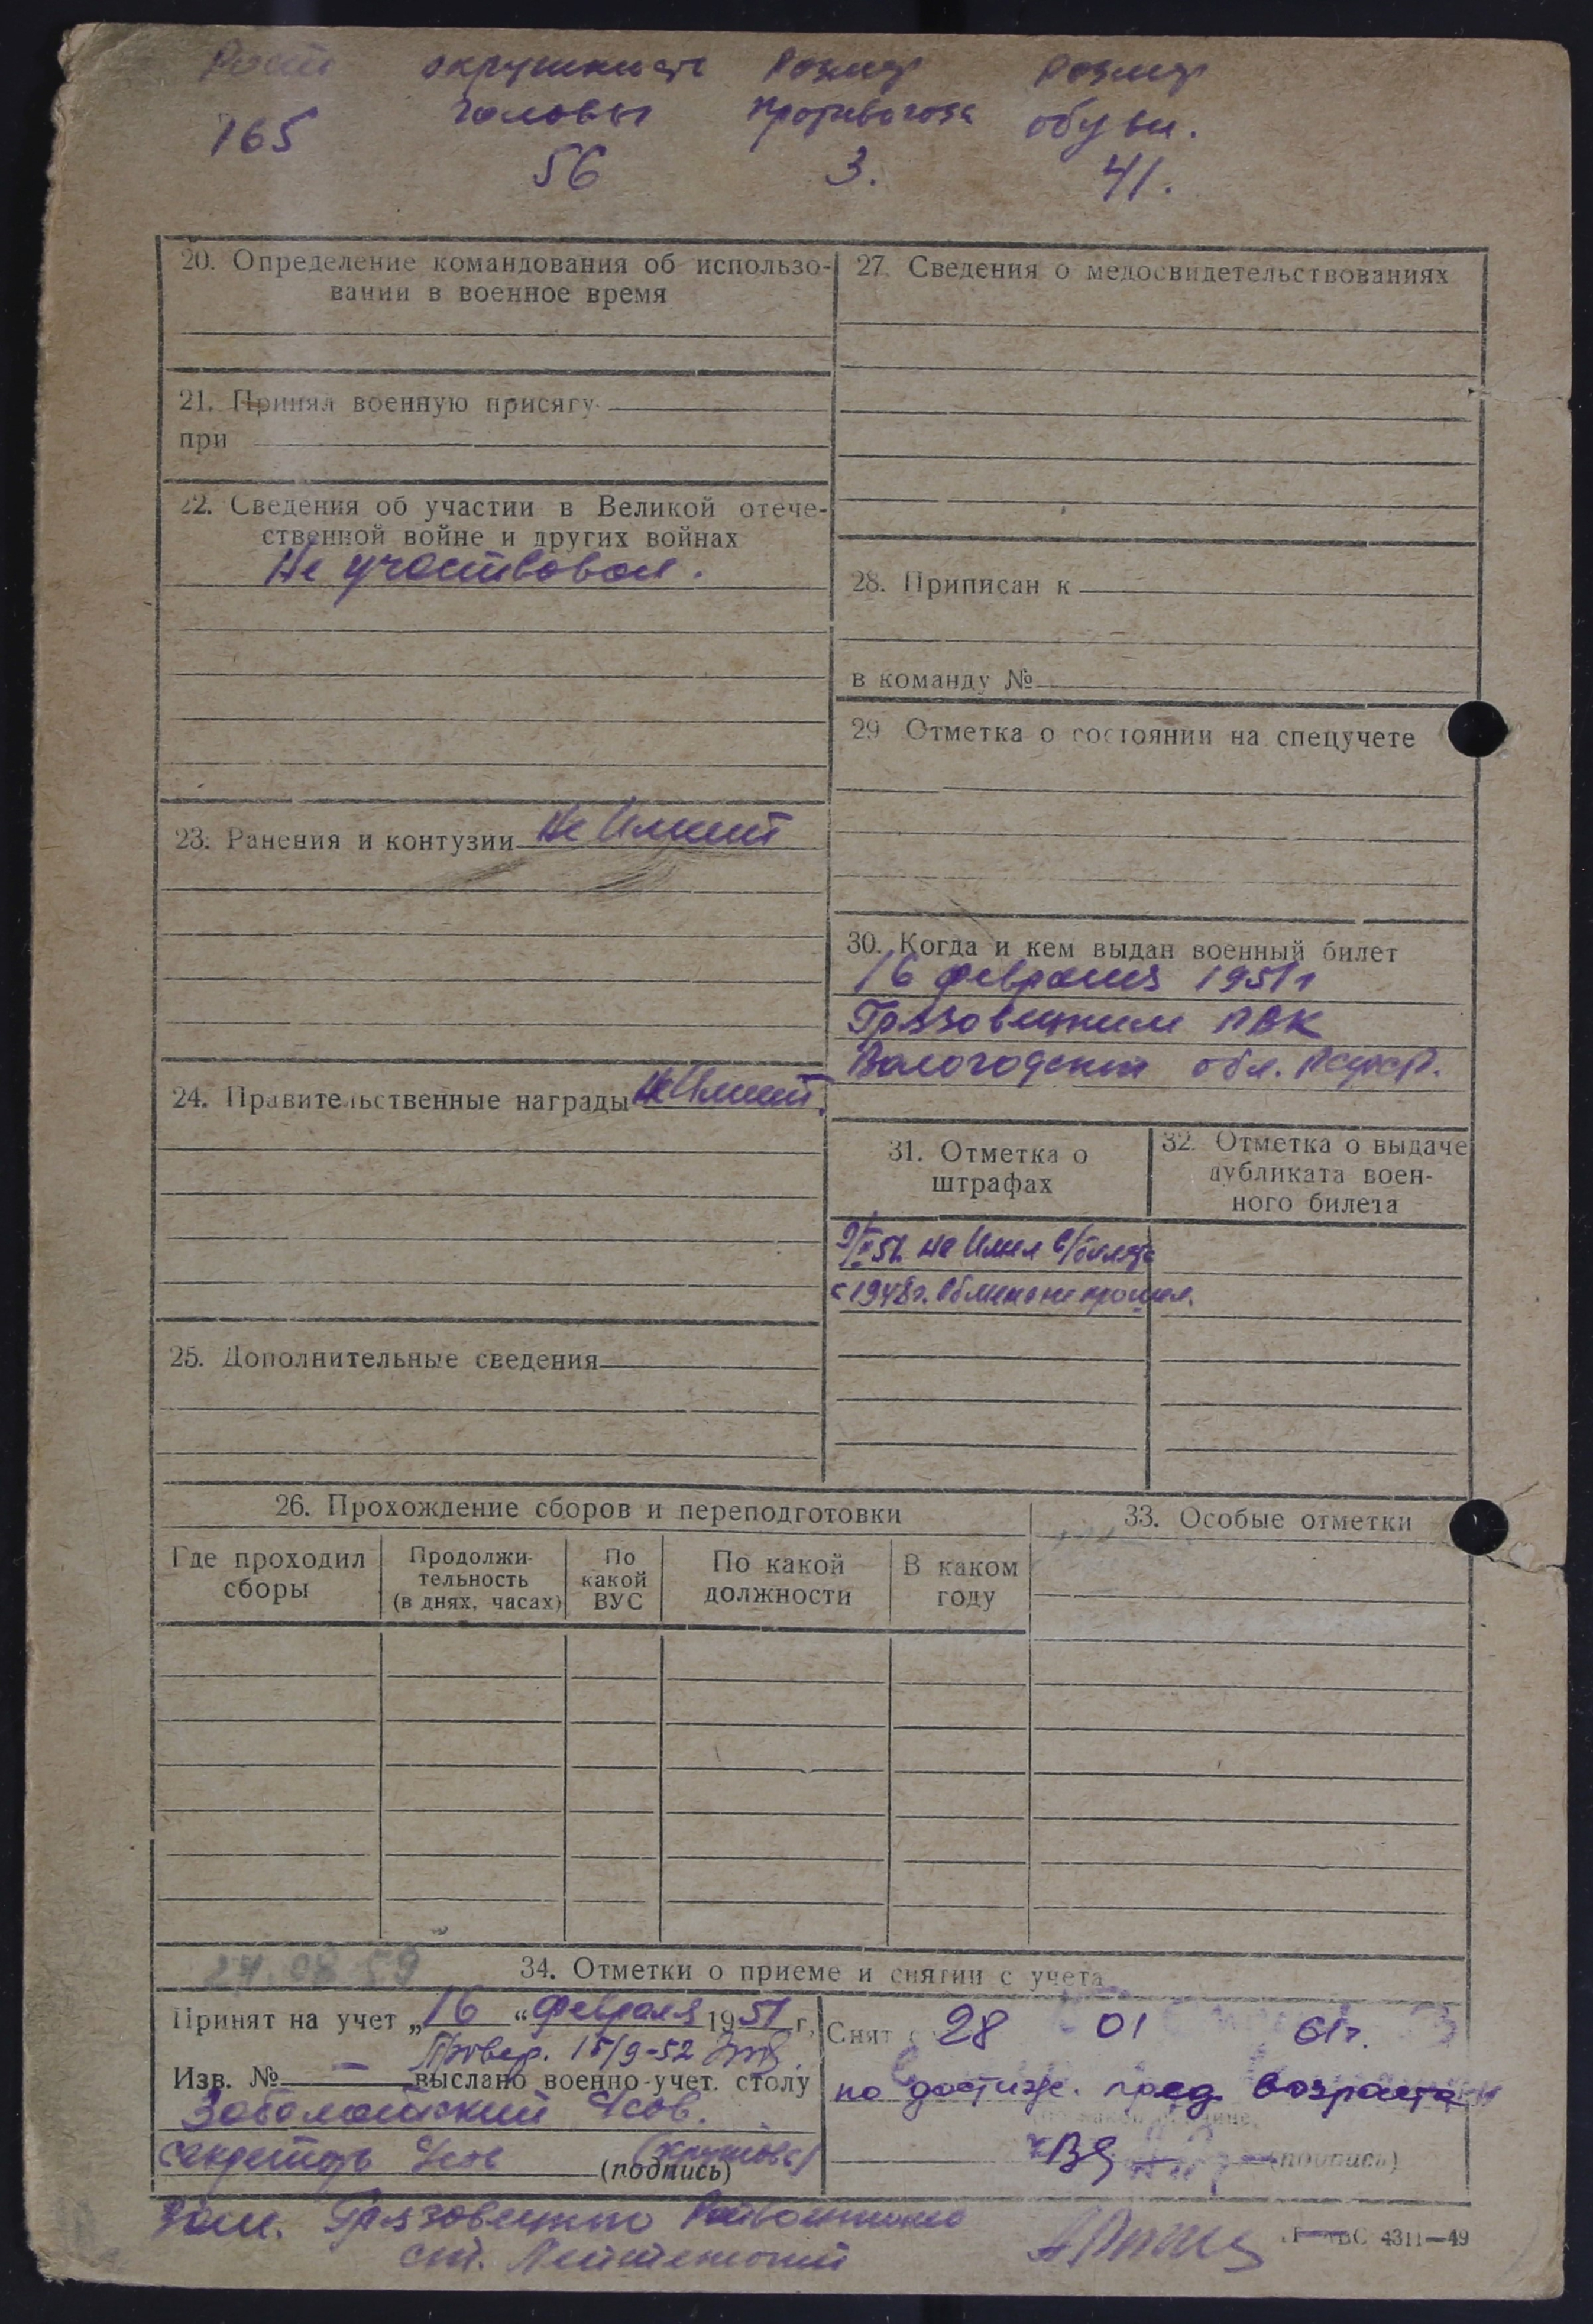 Рост окружность Размер Размер
головы противогаза обуви.
165 56 3. 41.
20. Определение командования об использо-
вании в военное время
21. Принял военную присягу
при
22. Сведения об участии в Великой отече-
ственной войне и других войнах
Не участвовал.
23. Ранения и контузии Не Имеет
24. Правительственные награды Не Имеет.
25. Дополнительные сведения
27. Сведения о медосвидетельствованиях
28. Приписан к
в команду №
29 Отметка о состоянии на спецучете
30. Когда и кем выдан военный билет
16 февраля 1951г
Грязовецким РВК
Вологодской обл. РСФСР.
31. Отметка о
штрафах
не Имел в/билета
с 1948г. Обмена не прошел.
32. Отметка о выдаче
дубликата воен-
ного билета
26. Прохождение сборов и переподготовки
Где проходил
сборы
Продолжи-
тельность
(в днях, часах)
По
какой
ВУС
По какой
должности
В каком
году
33. Особые отметки
27.08 59
34. Отметки о приеме и снятии с учета
Принят на учет „16“ февраля 1951 г.
Провер. 15/9-52
Изв. № — выслано военно-учет. столу
Заболотский
секретарь
(подпись)
Снят с 28 01 61г.
по достиже. пред. возраста
(подпись)
Грязовецкого Райвоенкома
ст. Лейтенант
ВС 4311—49